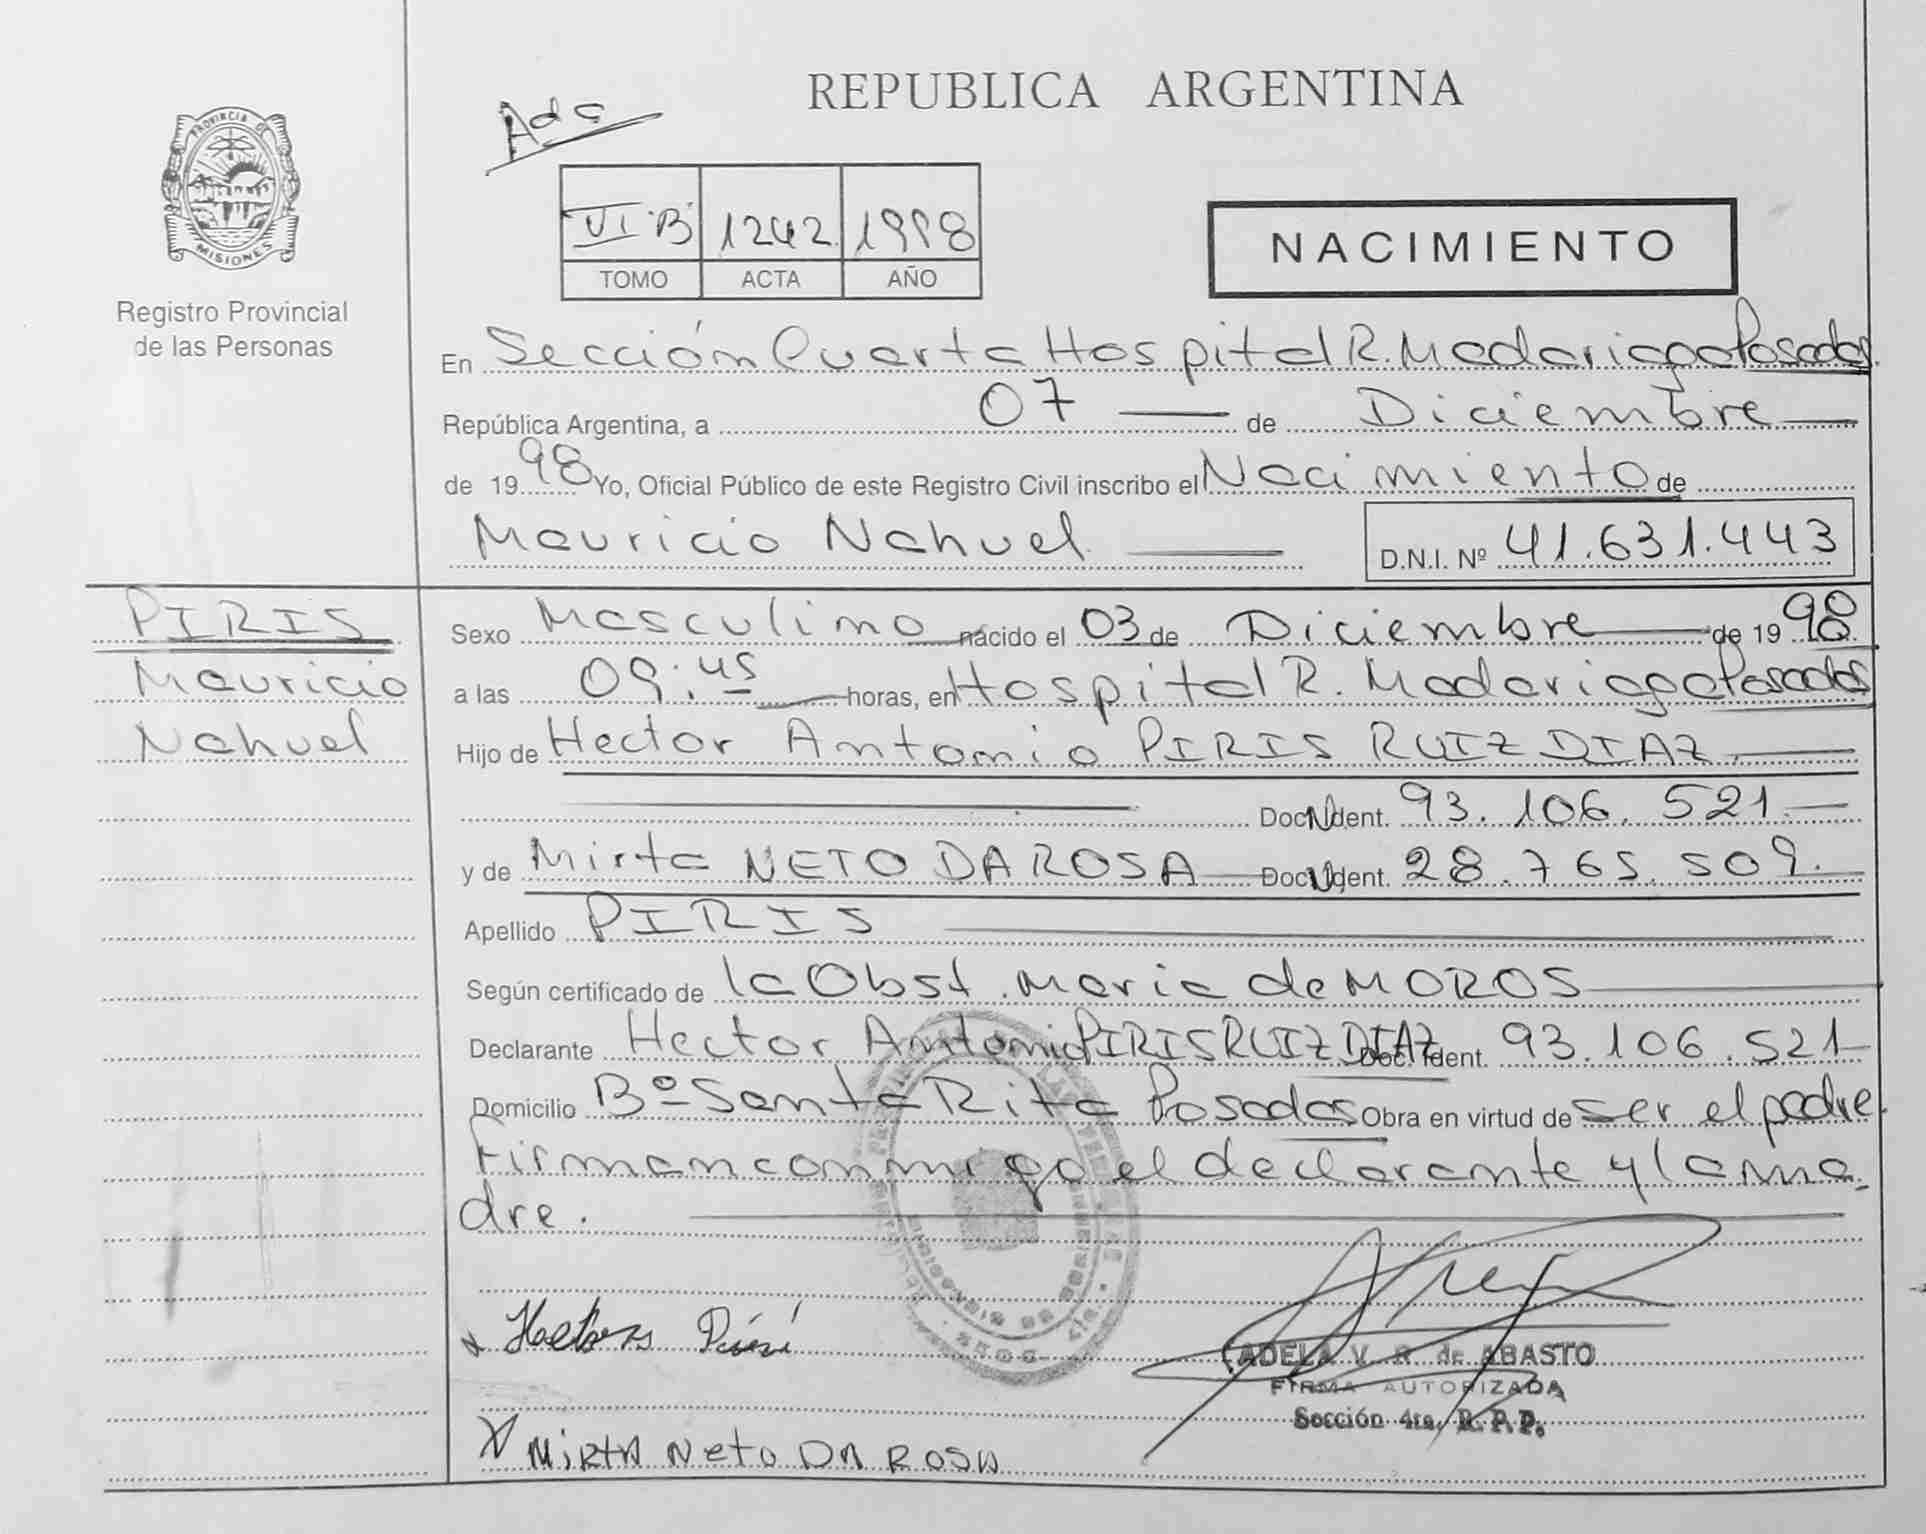 REPUBLICA ARGENTINA
PROVINCIA DE
MISIONES
Registro Provincial
de las Personas
VI·B 1242 1998
TOMO ACTA AÑO
NACIMIENTO
En Sección Cuarta Hospital R. Madariaga Posadas.
República Argentina, a 07 de Diciembre
de 1998 Yo, Oficial Público de este Registro Civil inscribo el Nacimiento de
Mauricio Nahuel D.N.I. Nº 41.631.443
PIRIS
Mauricio
Nahuel
Sexo Masculino nacido el 03 de Diciembre de 1998
a las 09:45 horas, en Hospital R. Madariaga Posadas
Hijo de Hector Antonio PIRIS RUIZ DIAZ
Doc. Ident. 93.106.521
y de Mirta NETO DA ROSA Doc. Ident. 28.765.509.
Apellido PIRIS
Según certificado de la Obst. Maria de MOROS
Declarante Hector Antonio PIRIS RUIZ DIAZ Doc. Ident. 93.106.521
Domicilio Bº Santa Rita Posadas Obra en virtud de ser el padre.
Firman conmigo el declarante y la ma-
dre.
ADELA V. R. de ABASTO
FIRMA AUTORIZADA
Sección 4ta. R. P. P.
MIRTA Neto DA ROSA